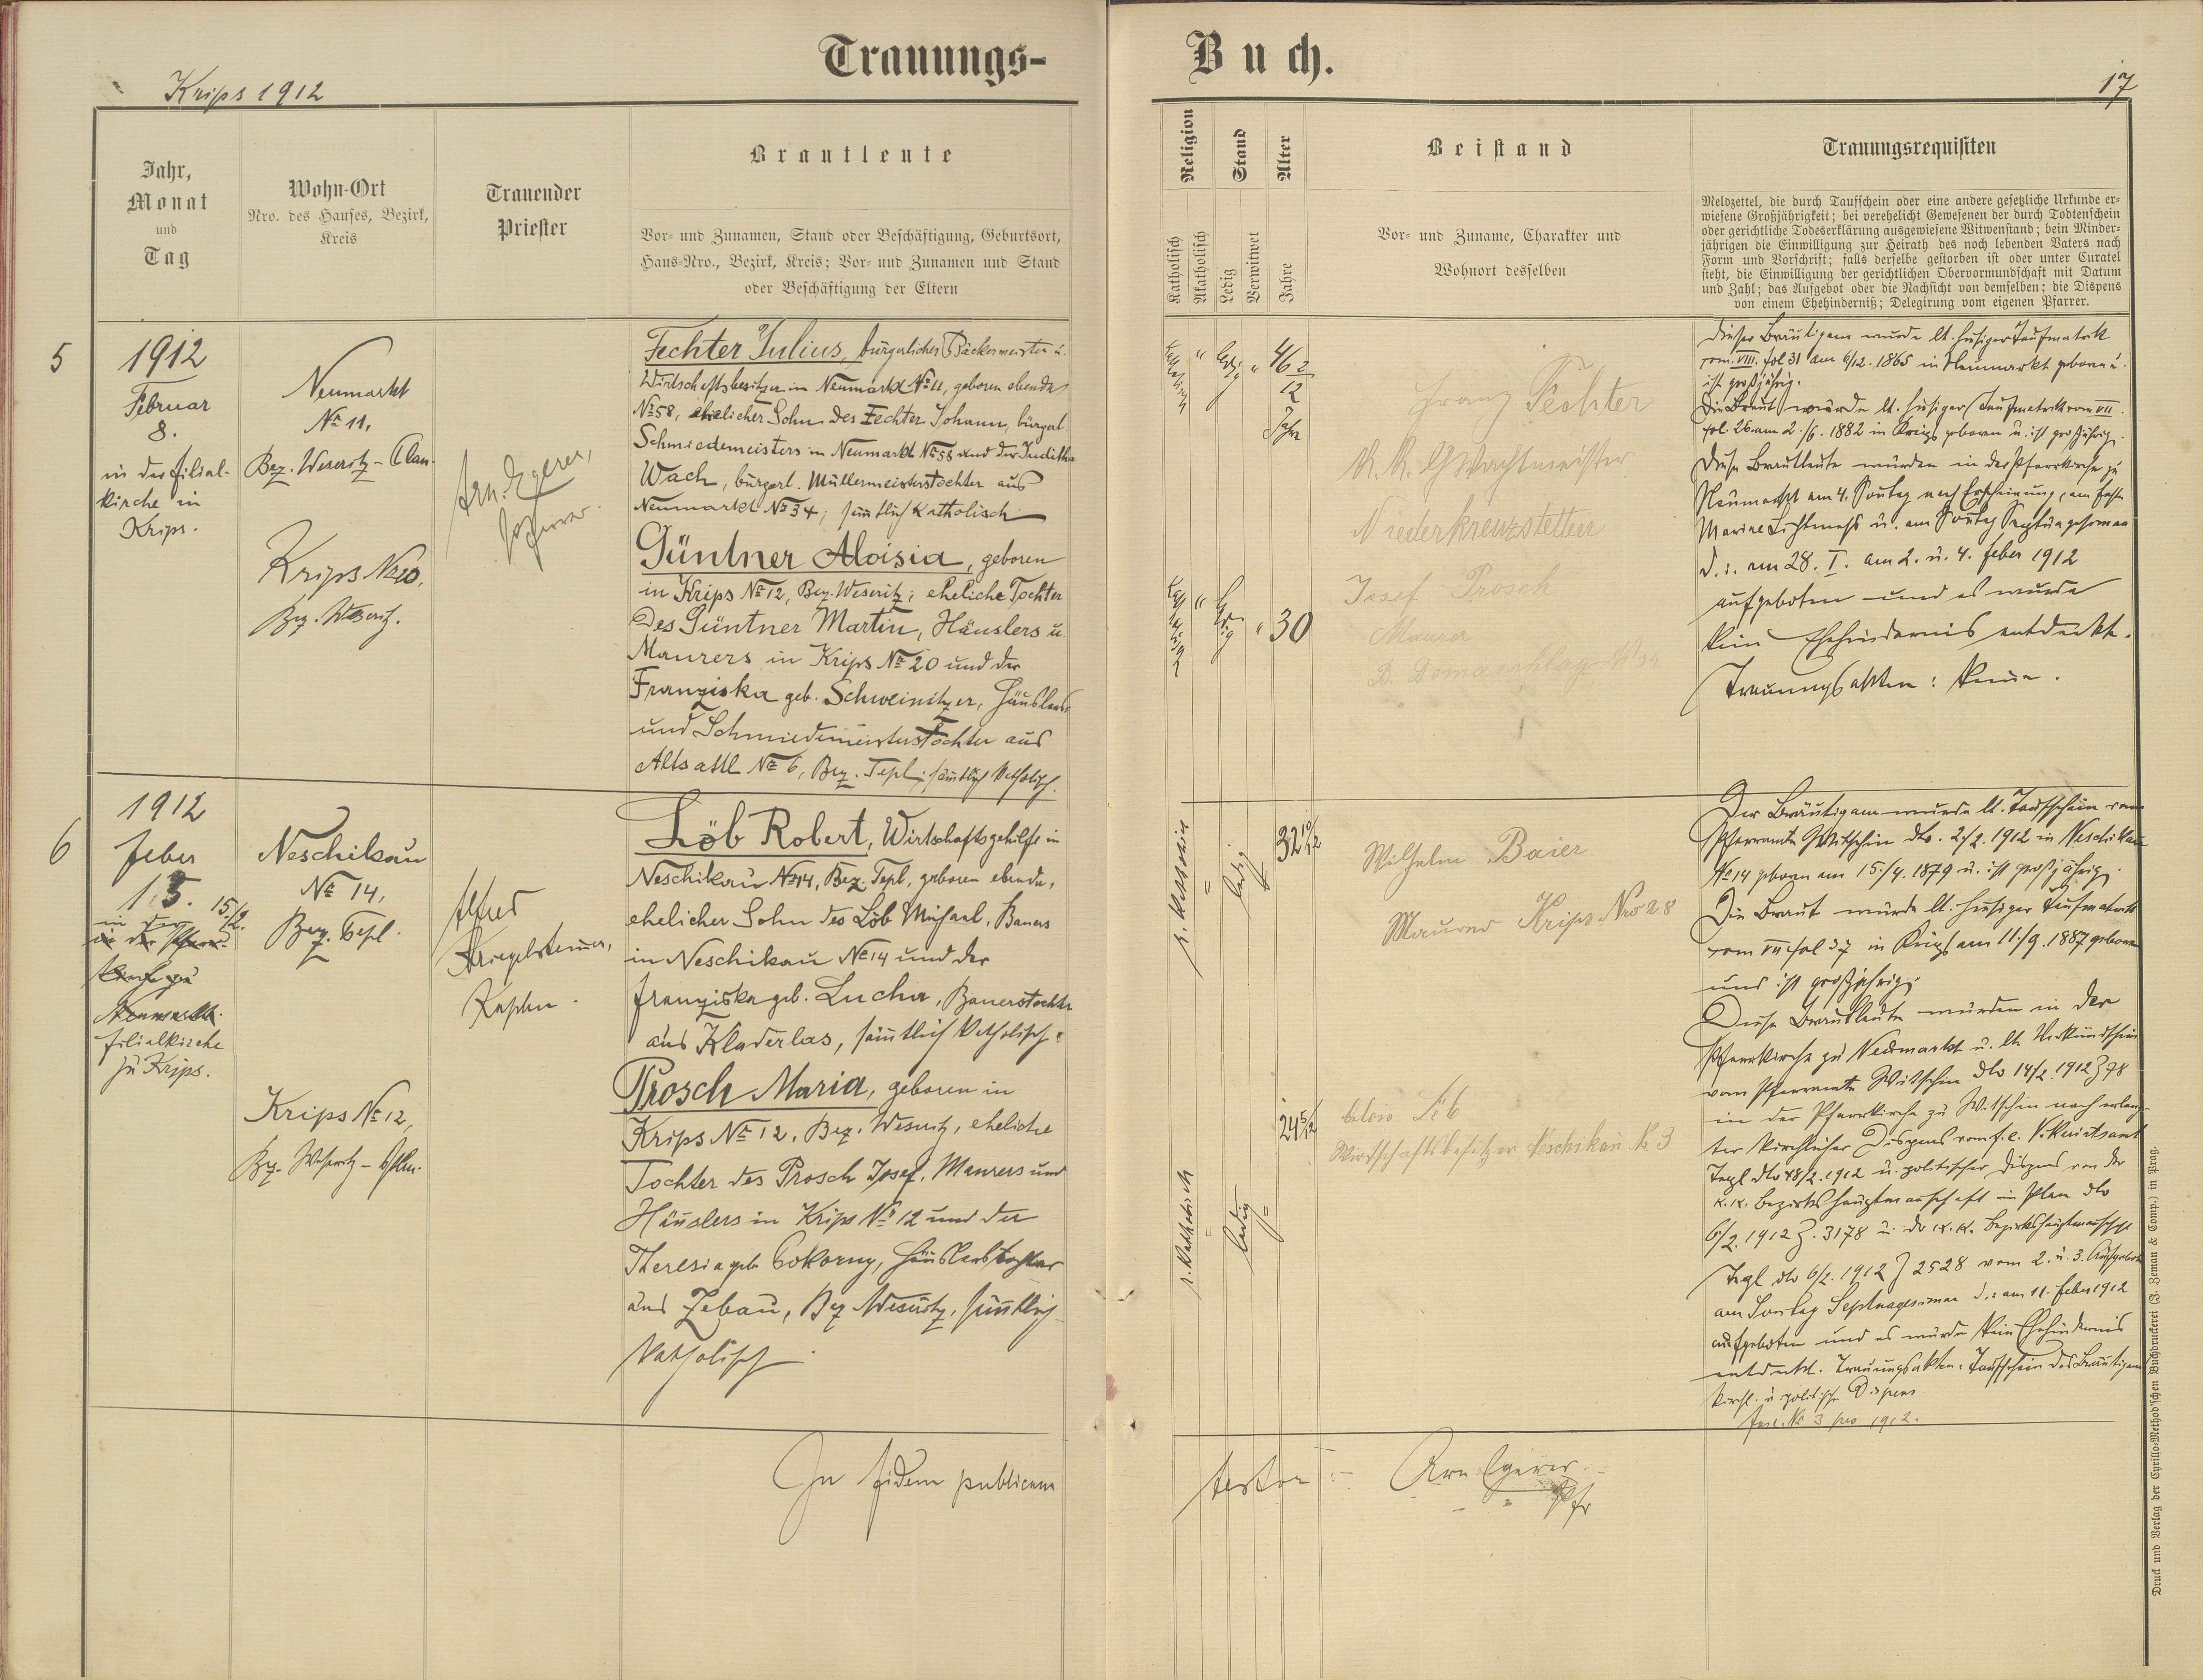 Trauungs-
Buch.
Krips 1912
17
Jahr,
Monat
und
Tag
Wohn-Ort
Nro. des Hauses, Bezirk,
Kreis
Trauender
Priester
Brautleute
Vor- und Zunamen, Stand oder Beschäftigung, Geburtsort,
Haus-Nro., Bezirk, Kreis; Vor- und Zunamen und Stand
oder Beschäftigung der Eltern
Religion
Stand
Alter
Katholisch
Akatholisch
Ledig
Verwitwet
Jahre
Beistand
Vor- und Zuname, Charakter und
Wohnort desselben
Trauungsrequisiten
Meldzettel, die durch Taufschein oder eine andere gesetzliche Urkunde er-
wiesene Großjährigkeit; bei verehelicht Gewesenen der durch Todtenschein
oder gerichtliche Todeserklärung ausgewiesene Witwenstand; beim Minder-
jährigen die Einwilligung zur Heirath des noch lebenden Vaters nach
Form und Vorschrift; falls derselbe gestorben ist oder unter Curatel
steht, die Einwilligung der gerichtlichen Obervormundschaft mit Datum
und Zahl; das Aufgebot oder die Nachsicht von demselben; die Dispens
von einem Ehehinderniß; Delegirung vom eigenen Pfarrer.
5
1912
Februar
8.
in der Filial-
kirche in
Krips.
Neumarkt
No 11,
Bez. Weseritz - Plan.
Krips No 20,
Bez. Weseritz.
Arn. Egerer,
Pfarrer.
Fechter Julius, bürgerlicher Bäckermeister u.
Wirtschaftsbesitzer in Neumarkt No 11, geboren ebenda
No 58, ehelicher Sohn des Fechter Johann, bürgerl.
Schmiedemeisters in Neumarkt No 58 und der Juditha
Wach, bürgerl. Müllermeisterstochter aus
Neumarkt No 34; sämtlich katholisch
Güntner Aloisia, geboren
in Krips No 12, Bez. Weseritz; eheliche Tochter
des Güntner Martin, Häuslers u.
Maurers in Krips No 20 und der
Franziska geb. Schweinitzer, Häuslers-
und Schmiedemeisterstochter aus
Altsattl No 6, Bez. Tepl; sämtlich katholisch.
katholisch " ledig " 46 2/12 Jahre
katholisch " ledig " 30
Franz Fechter
k. k. Wachtmeister
Niederkreuzstetten
Josef Prosch
Maurer
D. Domaschlag
Dieser Bräutigam wurde lt. hiesiger Taufmatrik
tom. VIII. fol 31 am 6/12. 1865 in Neumarkt geboren u.
ist großjährig.
Die Braut wurde lt. hiesiger Taufmatrik tom VII.
fol. 26 am 2./6. 1882 in Krips geboren u. ist großjährig.
Diese Brautleute wurden in der Pfarrkirche zu
Neumarkt am 4. Sonntag nach Erscheinung, am Feste
Mariae Lichtmess u. am Sonntag Septuagesimae
d. i. am 28. I. am 2. u. 4. Feber 1912
aufgeboten und es wurde
kein Ehehindernis entdeckt.
Trauungsakten: keine.
6
1912
Feber
15. 15./2.
in der
in der Pfarr-
kirche zu
Neumarkt.
Filialkirche
zu Krips.
Neschikau
No 14,
Bez. Tepl.
Krips No 12,
Bez. Weseritz - Plan.
Alfred
Kriegelsteiner,
Kaplan.
Löb Robert, Wirtschaftsgehilfe in
Neschikau No 14, Bez. Tepl, geboren ebenda,
ehelicher Sohn des Löb Michael, Bauers
in Neschikau No 14 und der
Franziska geb. Lucha, Bauerstochter
aus Kladerlas, sämtlich katholisch.
Prosch Maria, geboren in
Krips No 12, Bez. Weseritz, eheliche
Tochter des Prosch Josef, Maurers und
Häuslers in Krips No 12 und der
Theresia geb. Pokorny, Häuslerstochter
aus Zebau, Bez Weseritz, sämtlich
katholisch.
r. katholisch = ledig = 32 10/12
r. katholisch = ledig = 24 5/12
Wilhelm Baier
Maurer Krips Nro 28
Alois Löb
Wirtschaftsbesitzer Neschikau N. 3
Der Bräutigam wurde lt. Taufschein vom
Pfarramte Witschin dto. 2/2. 1912 in Neschikau
No 14 geboren am 15./4. 1879 u. ist großjährig.
Die Braut wurde lt. hiesiger Taufmatrik
tom VII fol 37 in Krips am 11./9. 1887 geboren
und ist großjährig.
Diese Brautleute wurden in der
Pfarrkirche zu Neumarkt u. lt. Verkündschein
vom Pfarramte Witschin dto 14/2. 1912 Z 78
in der Pfarrkirche zu Witschin nach erlang-
ter kirchlicher Dispens vom f. e. Vikariatsamt
Tepl dto 8/2. 1912 u. politischer Dispens von der
k. k. Bezirkshauptmannschaft in Plan dto
6/2. 1912 Z. 3178 u. der k. k. Bezirkshauptmannschaft
Tepl dto 6/2. 1912 Z 2528 vom 2. u. 3. Aufgebote
am Sonntag Septuagesimae d. i. am 11. Feber 1912
aufgeboten und es wurde kein Ehehindernis
entdeckt. Trauungsakten: Taufschein des Bräutigams
kirchl. u politische Dispens.
Fasc. No 3 pro 1912.
In fidem publicam
testor :- Arn Egerer
Pfr
Druck und Verlag der Cyrillo-Method'schen Buchdruckerei (J. Zeman & Comp.) in Prag.